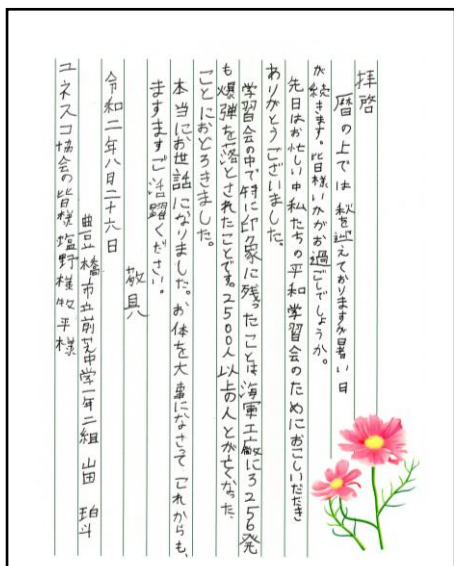 拝啓
暦の上では秋を迎えておりますが暑い日
が続きます。皆様いかがお過ごしでしょうか。
先日はお忙しい中私たちの平和学習会のためにおこしいただき
ありがとうございました。
学習会の中で特に印象に残ったことは海軍工廠に3256発
も爆弾を落とされたことです。2500人以上の人とが亡くなった
ことにおどろきました。
本当にお世話になりました。お体を大事になさってこれからも、
ますますご活躍ください。
敬具
令和二年八月二十六日
豊橋市立前芝中学一年二組 山田 珀斗
ユネスコ協会の皆様塩野様牧平様